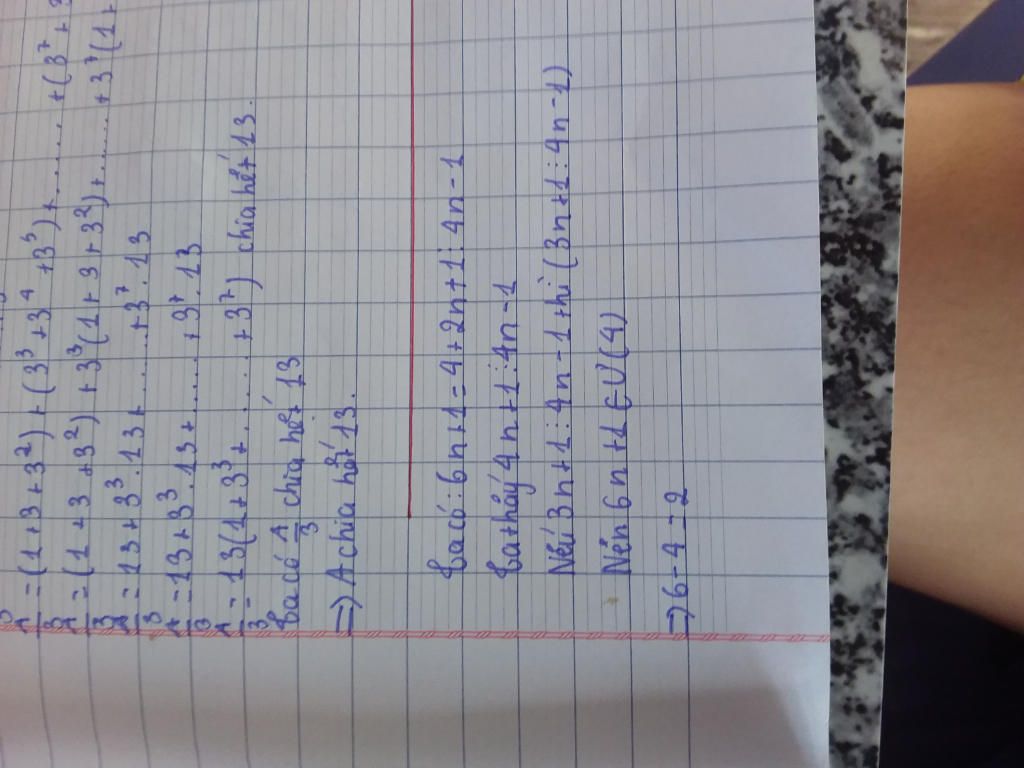 A/3 = (1+3+3²)+(3³+3⁴+3⁵)+.......+(3⁷+
A/3 = (1+3+3²)+3³(1+3+3²)+.......+3⁷(1+
A/3 = 13+3³.13+.......+3⁷.13
A/3 = 13+3³.13+.......+3⁷.13
A/3 = 13(1+3³+.......+3⁷) chia hết 13.
ta có A/3 chia hết 13
=> A chia hết 13.
ta có: 6n+1=4+2n+1:4n-1
ta thấy 4n+1:4n-1
Nếu 3n+1:4n-1 thì (3n+1:4n-1)
Nên 6n+1∈Ư(4)
=> 6-4=2